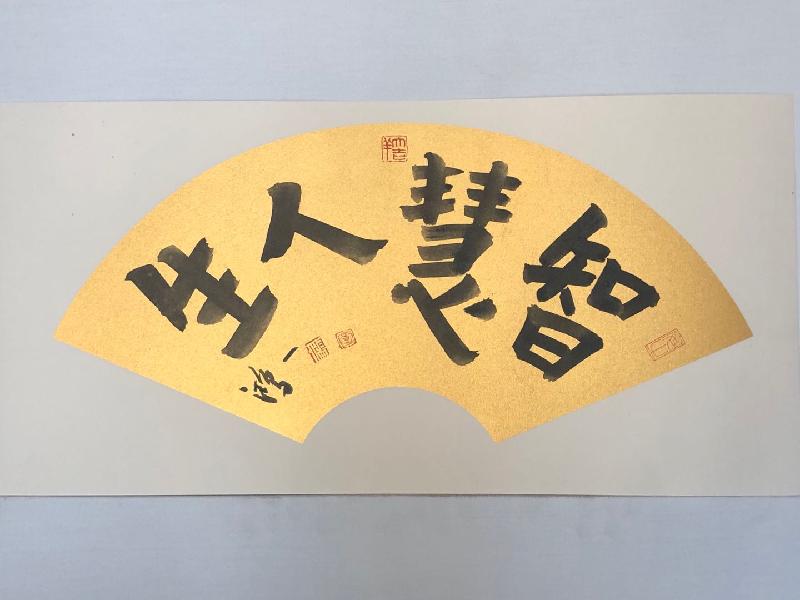 智慧人生
一鸿